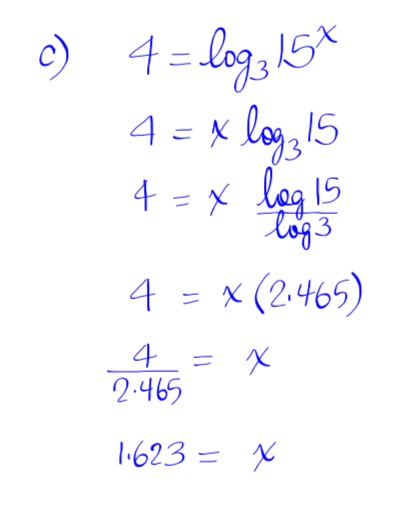 c) 4 = log₃ 15ˣ
4 = x log₃ 15
4 = x log 15 / log 3
4 = x (2.465)
4 / 2.465 = x
1.623 = x